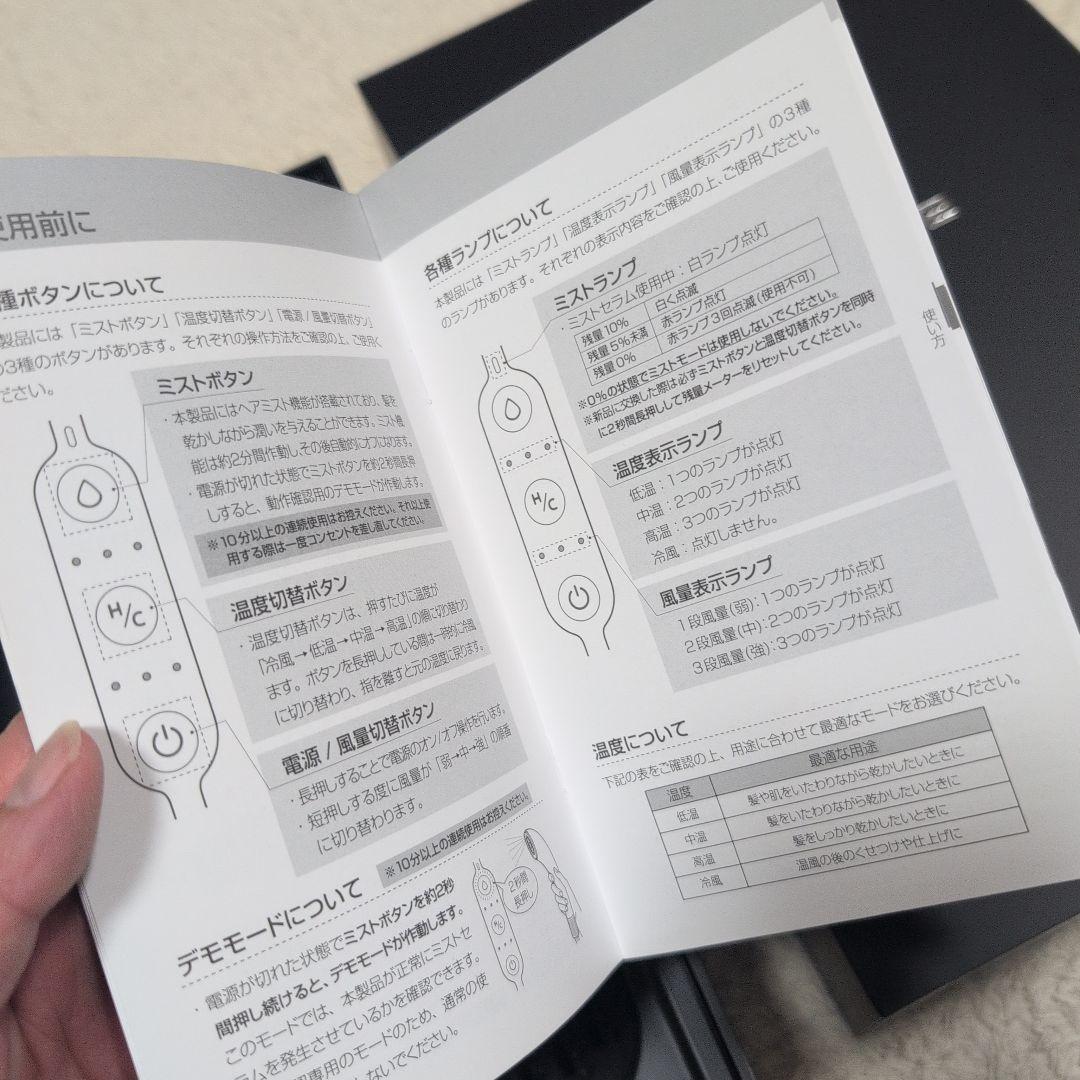 使用前に
種ボタンについて
製品には「ミストボタン」「温度切替ボタン」「電源/風量切替ボタン」
の3種のボタンがあります。それぞれの操作方法をご確認の上、ご使用く
ださい。
ミストボタン
・本製品にはヘアミスト機能が搭載されており、髪を
乾かしながら潤いを与えることができます。ミスト機
能は約2分間作動し、その後自動的にオフになります。
・電源が切れた状態でミストボタンを約2秒間長押
しすると、動作確認用のデモモードが作動します。
※10分以上の連続使用はお控えください。それ以上使
用する際は一度コンセントを差し直してください。
温度切替ボタン
・温度切替ボタンは、押すたびに温度が
「冷風→低温→中温→高温」の順に切り替わり
ます。ボタンを長押ししている際は一時的に冷風
に切り替わり、指を離すと元の温度に戻ります。
H/C
電源/風量切替ボタン
・長押しすることで電源のオン/オフ操作を行います。
・短押しする度に風量が「弱→中→強」の順番
に切り替わります。
※10分以上の連続使用はお控えください。
デモモードについて
・電源が切れた状態でミストボタンを約2秒
間押し続けると、デモモードが作動します。
このモードでは、本製品が正常にミストセ
ラムを発生させているかを確認できます。
専用のモードのため、通常の使
しないでください。
2秒間
長押し
H/C
各種ランプについて
本製品には「ミストランプ」「温度表示ランプ」「風量表示ランプ」の3種
のランプがあります。それぞれの表示内容をご確認の上、ご使用ください。
ミストランプ
・ミストセラム使用中：白ランプ点灯
残量10% 白く点滅
残量5%未満 赤ランプ点灯
残量0% 赤ランプ3回点滅(使用不可)
※0%の状態でミストモードは使用しないでください。
※新品に交換した際は必ずミストボタンと温度切替ボタンを同時
に2秒間長押しして残量メーターをリセットしてください。
H/C
温度表示ランプ
低温：1つのランプが点灯
中温：2つのランプが点灯
高温：3つのランプが点灯
冷風：点灯しません。
風量表示ランプ
1段風量(弱)：1つのランプが点灯
2段風量(中)：2つのランプが点灯
3段風量(強)：3つのランプが点灯
温度について
下記の表をご確認の上、用途に合わせて最適なモードをお選びください。
温度 最適な用途
低温 髪や肌をいたわりながら乾かしたいときに
中温 髪をいたわりながら乾かしたいときに
高温 髪をしっかり乾かしたいときに
冷風 温風の後のくせつけや仕上げに
使い方